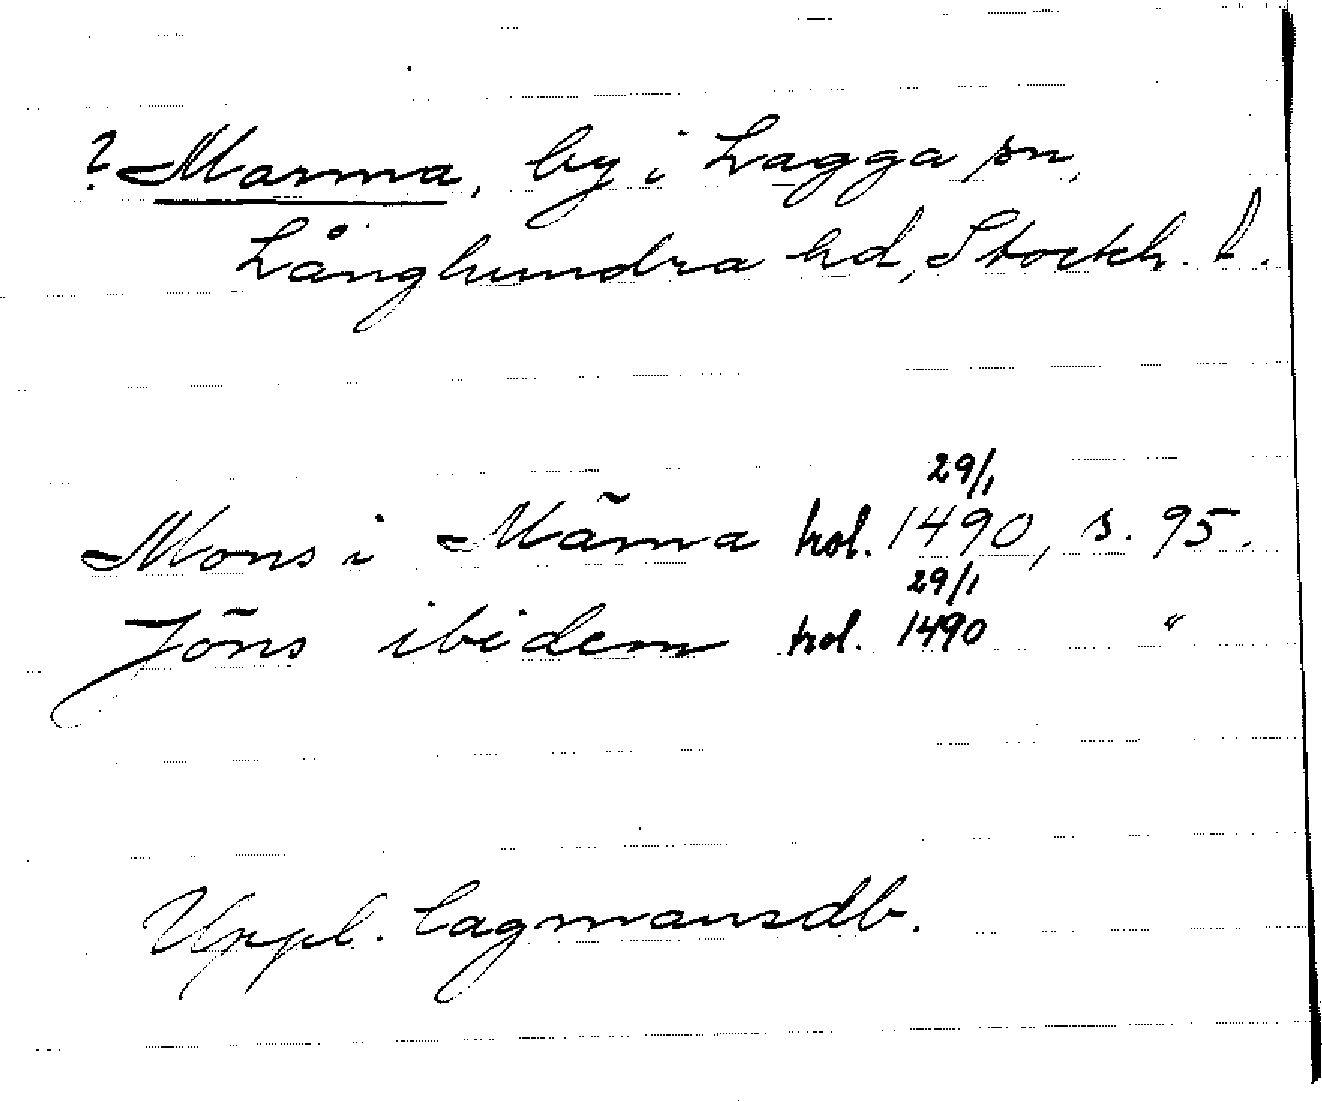 ? Marma, by i Lagga sn,
Långhundra hd, Stockh. l.
29/1
Mons i Mãrna hol. 1490, s. 95.
29/1
Jöns ibidem hol. 1490 "
Uppl. lagmansdb.